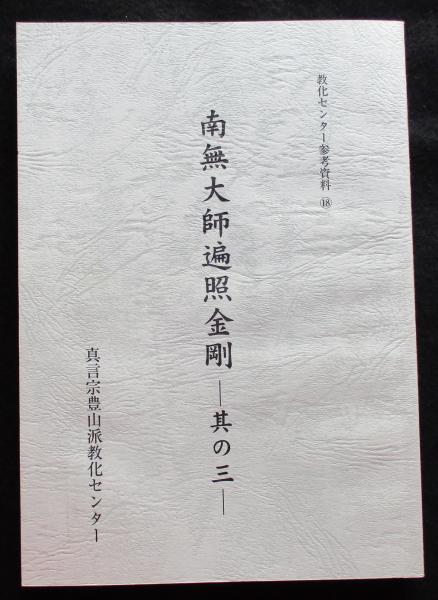 教化センター参考資料 ⑱
南無大師遍照金剛―其の三―
真言宗豊山派教化センター